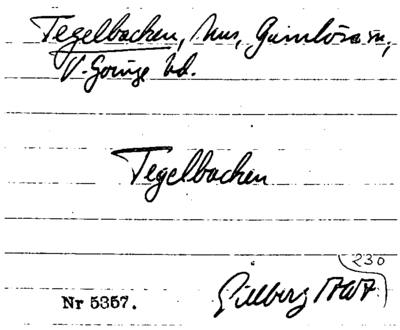 Tegelbacken, hus, Gumlösa sn,
V. Göinge hd.
Tegelbacken
230
Gillberg 1767
Nr 5357.